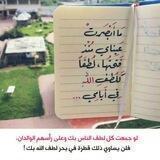 ما أبصرت
عيناي منذ
فتحتها، لطفًا
كلطف الله
في أيامي ..
لو جمعت كل لطف الناس بك وعلى رأسهم الوالدان،
فلن يساوي ذلك قطرة في بحر لطف الله بك!